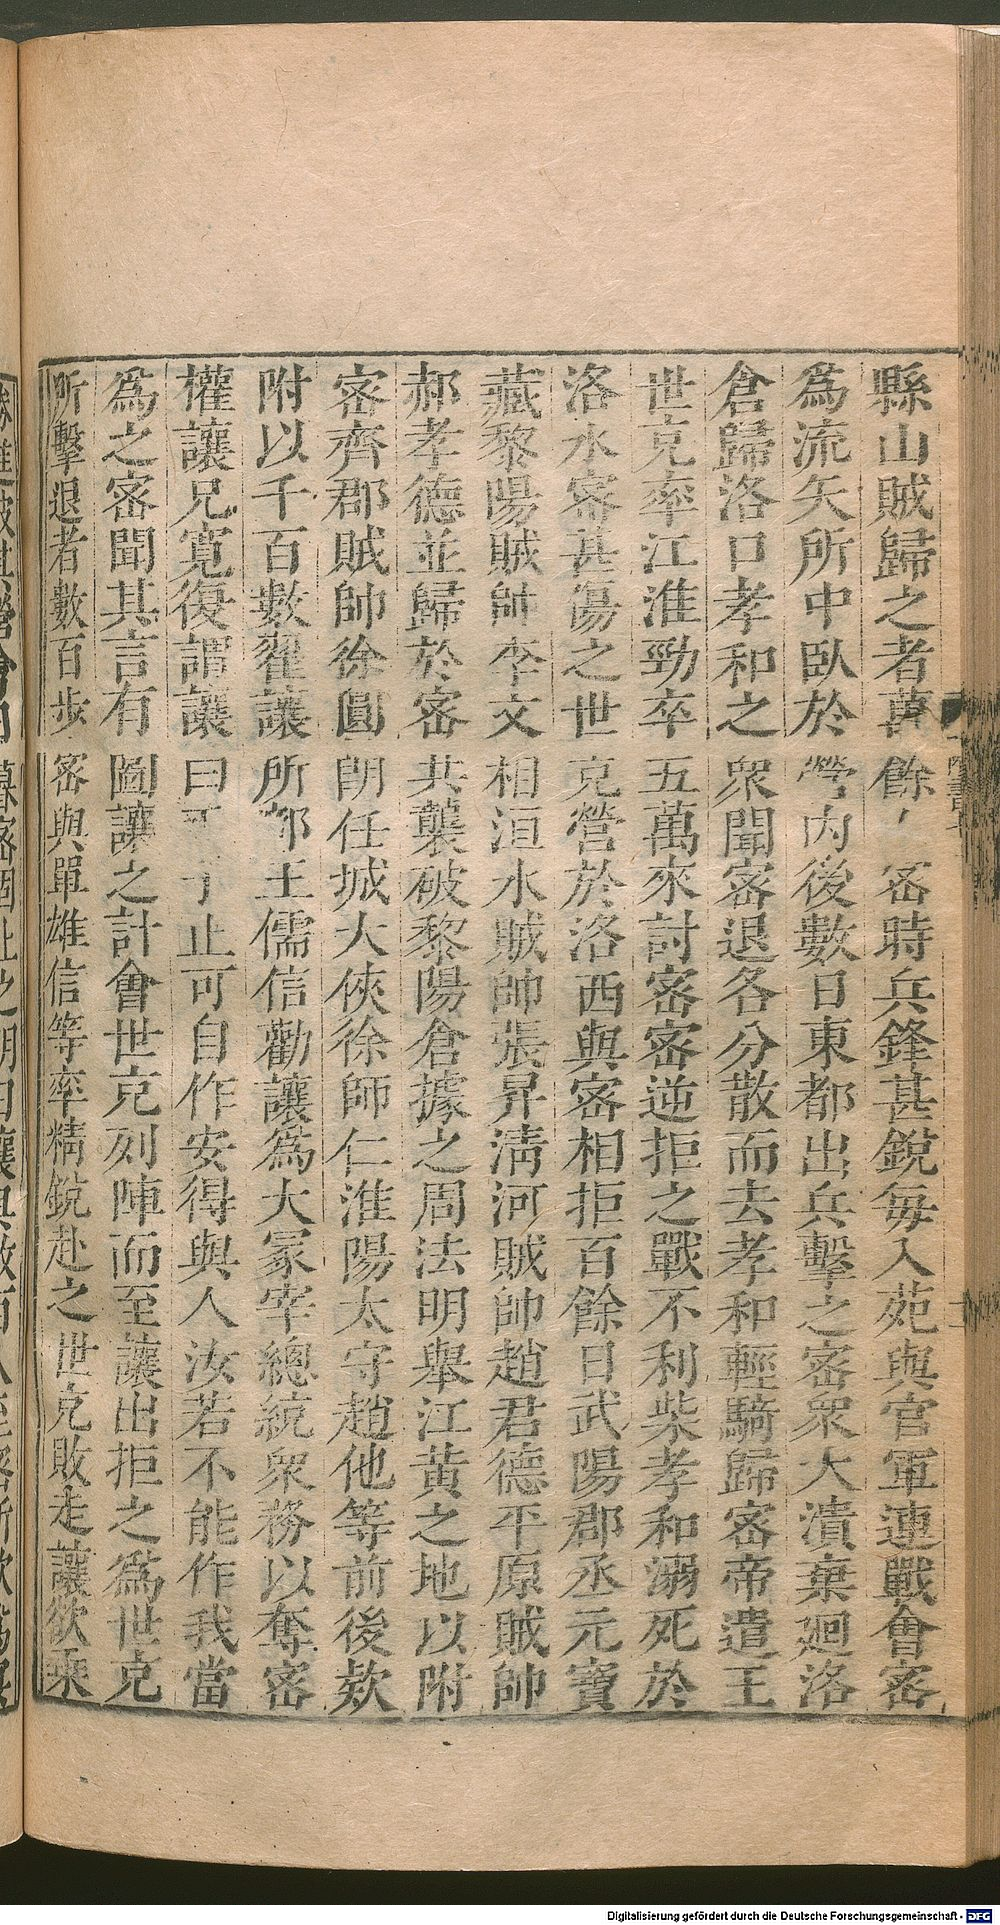 縣山賊歸之者萬餘人密時兵鋒甚銳每入苑與官軍連戰會密
爲流矢所中臥於營内後數日東都出兵擊之密衆大潰棄廻洛
倉歸洛口孝和之衆聞密退各分散而去孝和輕騎歸密帝遣王
世充率江淮勁卒五萬來討密密逆拒之戰不利柴孝和溺死於
洛水密甚傷之世充營於洛西與密相拒百餘日武陽郡丞元寶
藏黎陽賊帥李文相洹水賊帥張昇淸河賊帥趙君德平原賊帥
郝孝德並歸於密共襲破黎陽倉據之周法明舉江黃之地以附
密齊郡賊帥徐圓朗任城大俠徐師仁淮陽太守趙他等前後欵
附以千百數翟讓所部王儒信勸讓爲大冢宰總統衆務以奪密
權讓兄寬復謂讓曰天子止可自作安得與人汝若不能作我當
爲之密聞其言有圖讓之計會世充列陣而至讓出拒之爲世充
所擊退者數百步密與單雄信等率精銳赴之世充敗走讓欲乘
Digitalisierung gefördert durch die Deutsche Forschungsgemeinschaft - DFG